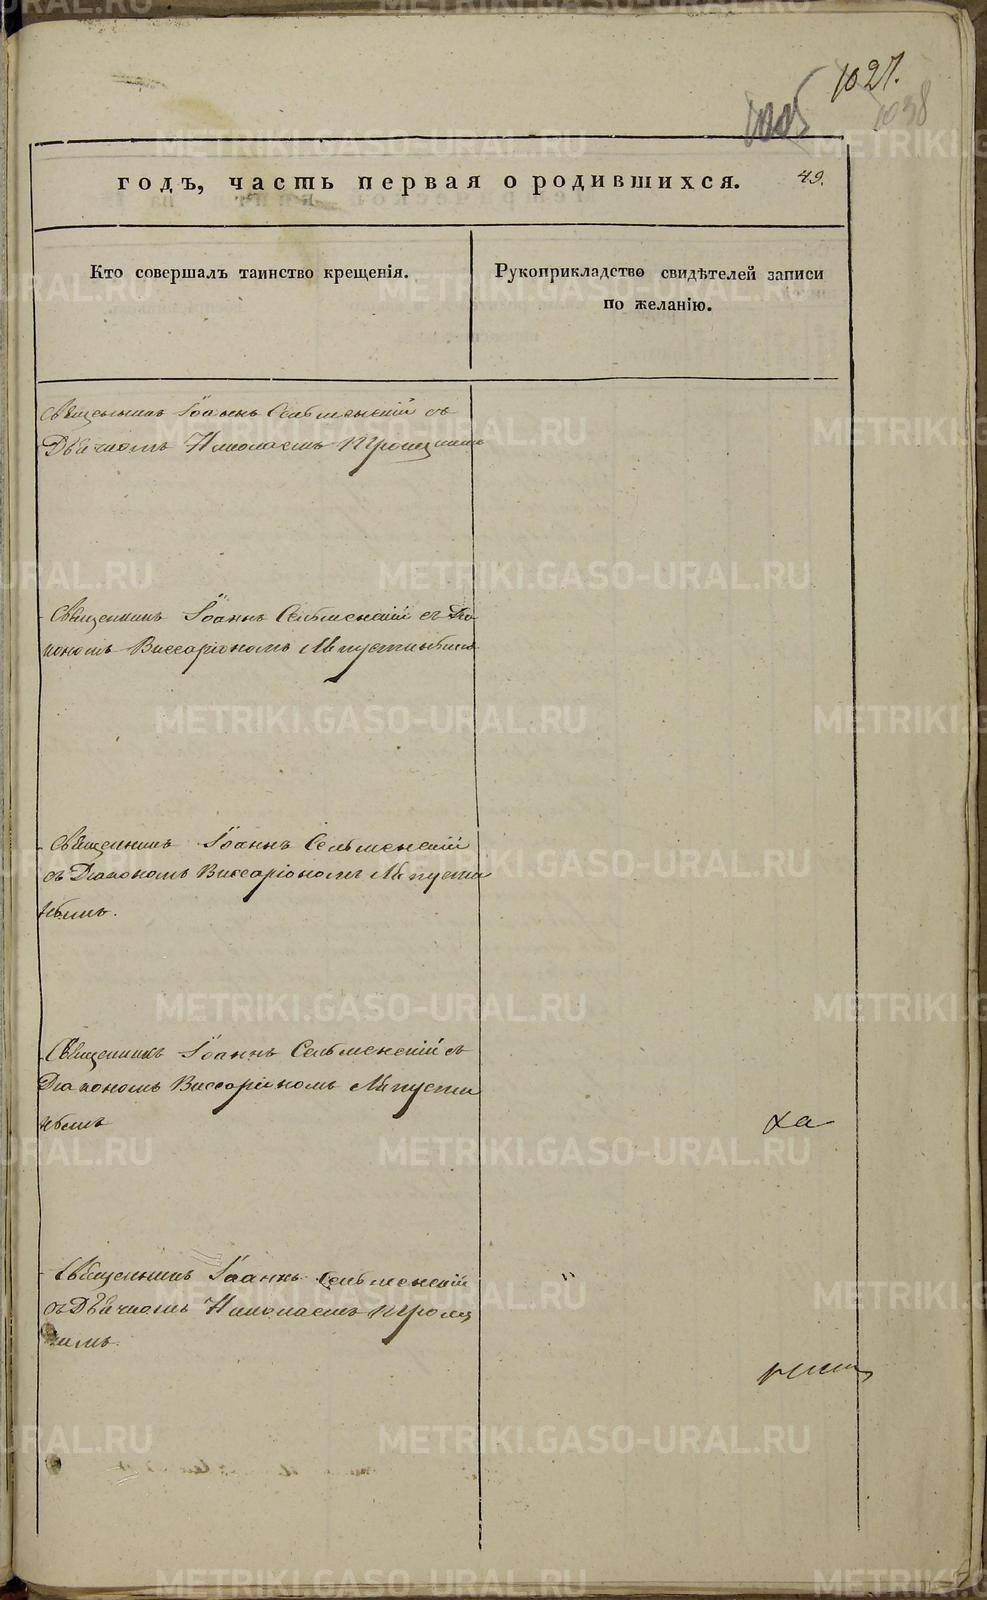 1027.
1038
1005
годъ, часть первая о родившихся.
49.
Кто совершалъ таинство крещенія.
Рукоприкладство свидѣтелей записи
по желанію.
Священникъ Іоаннъ Сельменскій съ
Дьячкомъ Николаемъ
Священникъ Іоаннъ Сельменскій съ Діа
кономъ Виссаріономъ Капустинымъ
Священникъ Іоаннъ Сельменскій
съ Діакономъ Виссаріономъ Капусти
нымъ.
Священникъ Іоаннъ Сельменскій съ
Діакономъ Виссаріономъ Капусти
нымъ
ха
Священникъ Іоаннъ Сельменскій
съ Дьячкомъ Николаемъ
METRIKI.GASO-URAL.RU